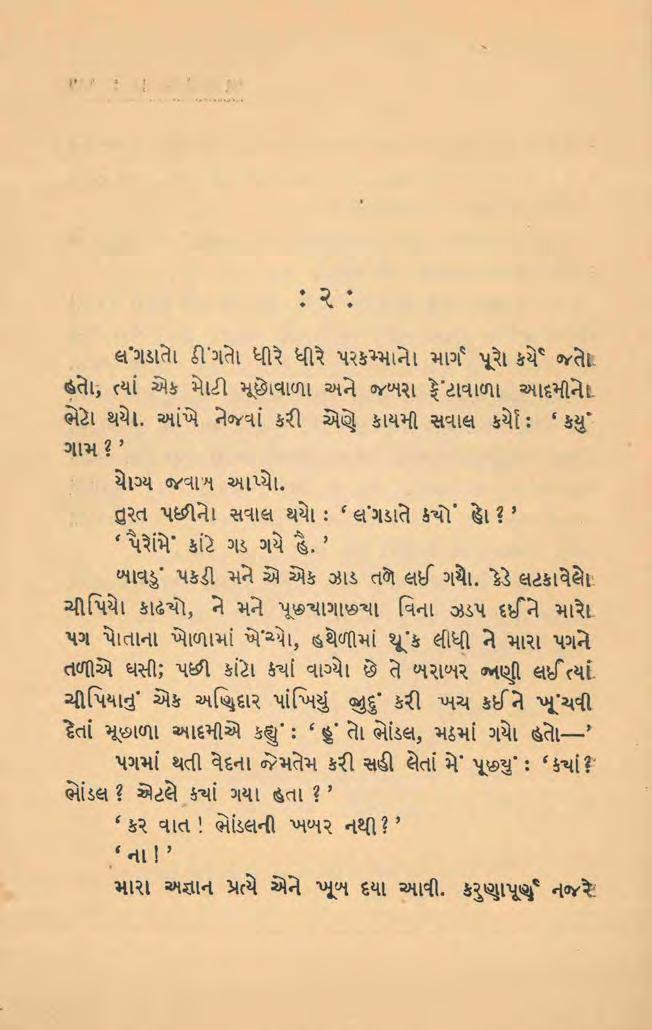 : ૨ :
લંગડાતો ઠીંગતો ધીરે ધીરે પરકમ્માનો માર્ગ પૂરો કર્યે જતો
હતો, ત્યાં એક મોટી મૂછોવાળા અને જબરા ફેંટાવાળા આદમીનો
ભેટો થયો. આંખે નેજવાં કરી એણે કાયમી સવાલ કર્યો : ‘ કયું
ગામ ? ’
યોગ્ય જવાબ આપ્યો.
તુરત પછીનો સવાલ થયો : ‘ લંગડાતે કયોં હો ? ’
‘ પૈરોંમેં કાંટે ગડ ગયે હૈ. ’
બાવડું પકડી મને એ એક ઝાડ તળે લઈ ગયો. કેડે લટકાવેલો
ચીપિયો કાઢયો, ને મને પૂછયાગાછયા વિના ઝડપ દઈને મારો
પગ પોતાના ખોળામાં ખેંચ્યો, હથેળીમાં થૂંક લીધી ને મારા પગને
તળીએ ઘસી; પછી કાંટો કયાં વાગ્યો છે તે બરાબર જાણી લઈ ત્યાં
ચીપિયાનું એક અણિદાર પાંખિયું જુદું કરી ખચ કઈને ખૂંચવી
દેતાં મૂછાળા આદમીએ કહ્યું : ‘ હું તો ભોંડલ, મઠમાં ગયો હતો—’
પગમાં થતી વેદના જેમતેમ કરી સહી લેતાં મેં પૂછયું : ‘કયાં ?
ભોંડલ ? એટલે કયાં ગયા હતા ? ’
‘ કર વાત ! ભોંડલની ખબર નથી ? ’
‘ ના ! ’
મારા અજ્ઞાન પ્રત્યે એને ખૂબ દયા આવી. કરુણાપૂર્ણ નજરે